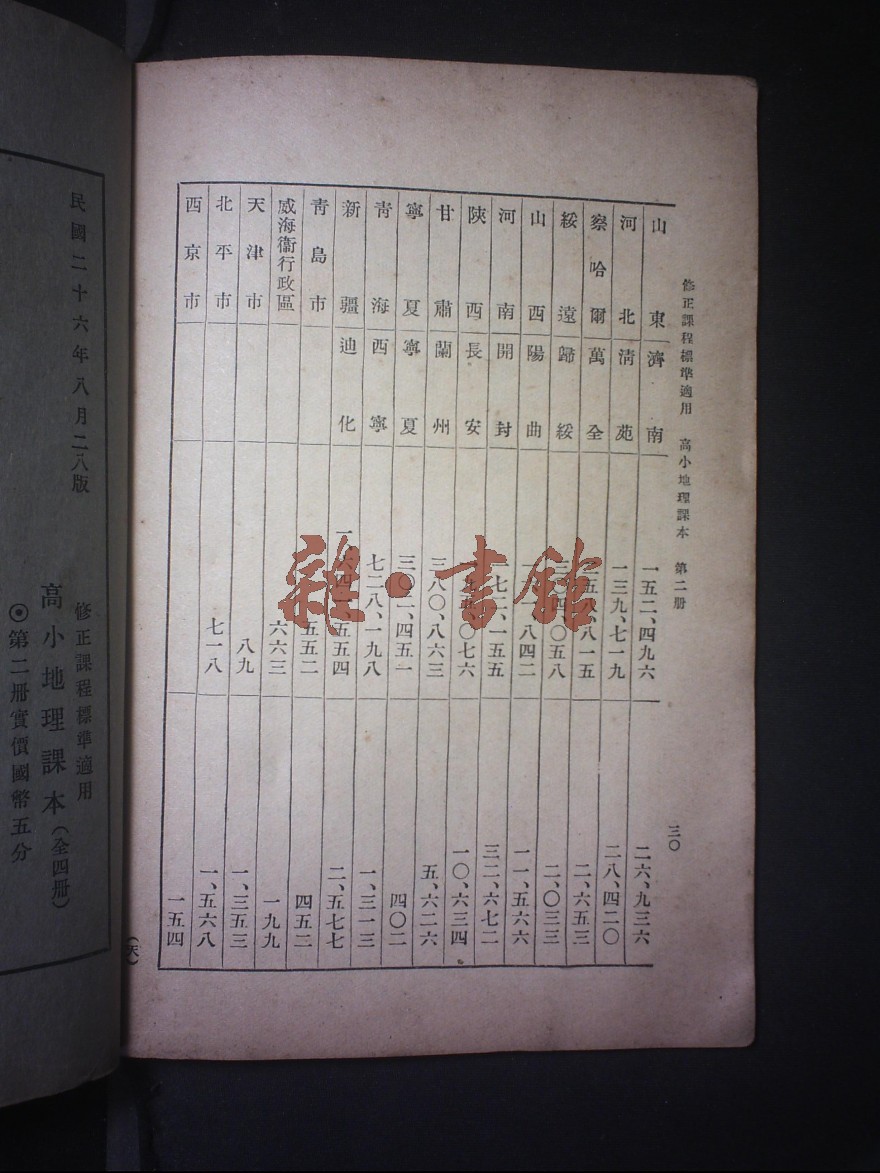 修正課程標準適用 高小地理課本 第二册
三〇
山東 濟南 一五二、四九六 二六、九三六
河北 清苑 一三九、七一九 二八、四二〇
察哈爾 萬全 五八、八一五 二、六五三
綏遠 歸綏 〇四、〇五八 二、〇三三
山西 陽曲 八四二 一一、五六六
河南 開封 一七一、一五五 三二、六七二
陝西 長安 〇七六 一〇、六三四
甘肅 蘭州 三八〇、八六三 五、六二六
寧夏 寧夏 三〇二、四五一 四〇二
青海 西寧 七二八、一九八 一、三一三
新疆 迪化 五五四 二、五七七
青島市 五五二 四五二
威海衞行政區 六六三 一九九
天津市 八九 一、三五三
北平市 七一八 一、五六八
西京市 一五四
民國二十六年八月二八版
修正課程標準適用
高小地理課本(全四册)
◉第二册實價國幣五分
雜·書館